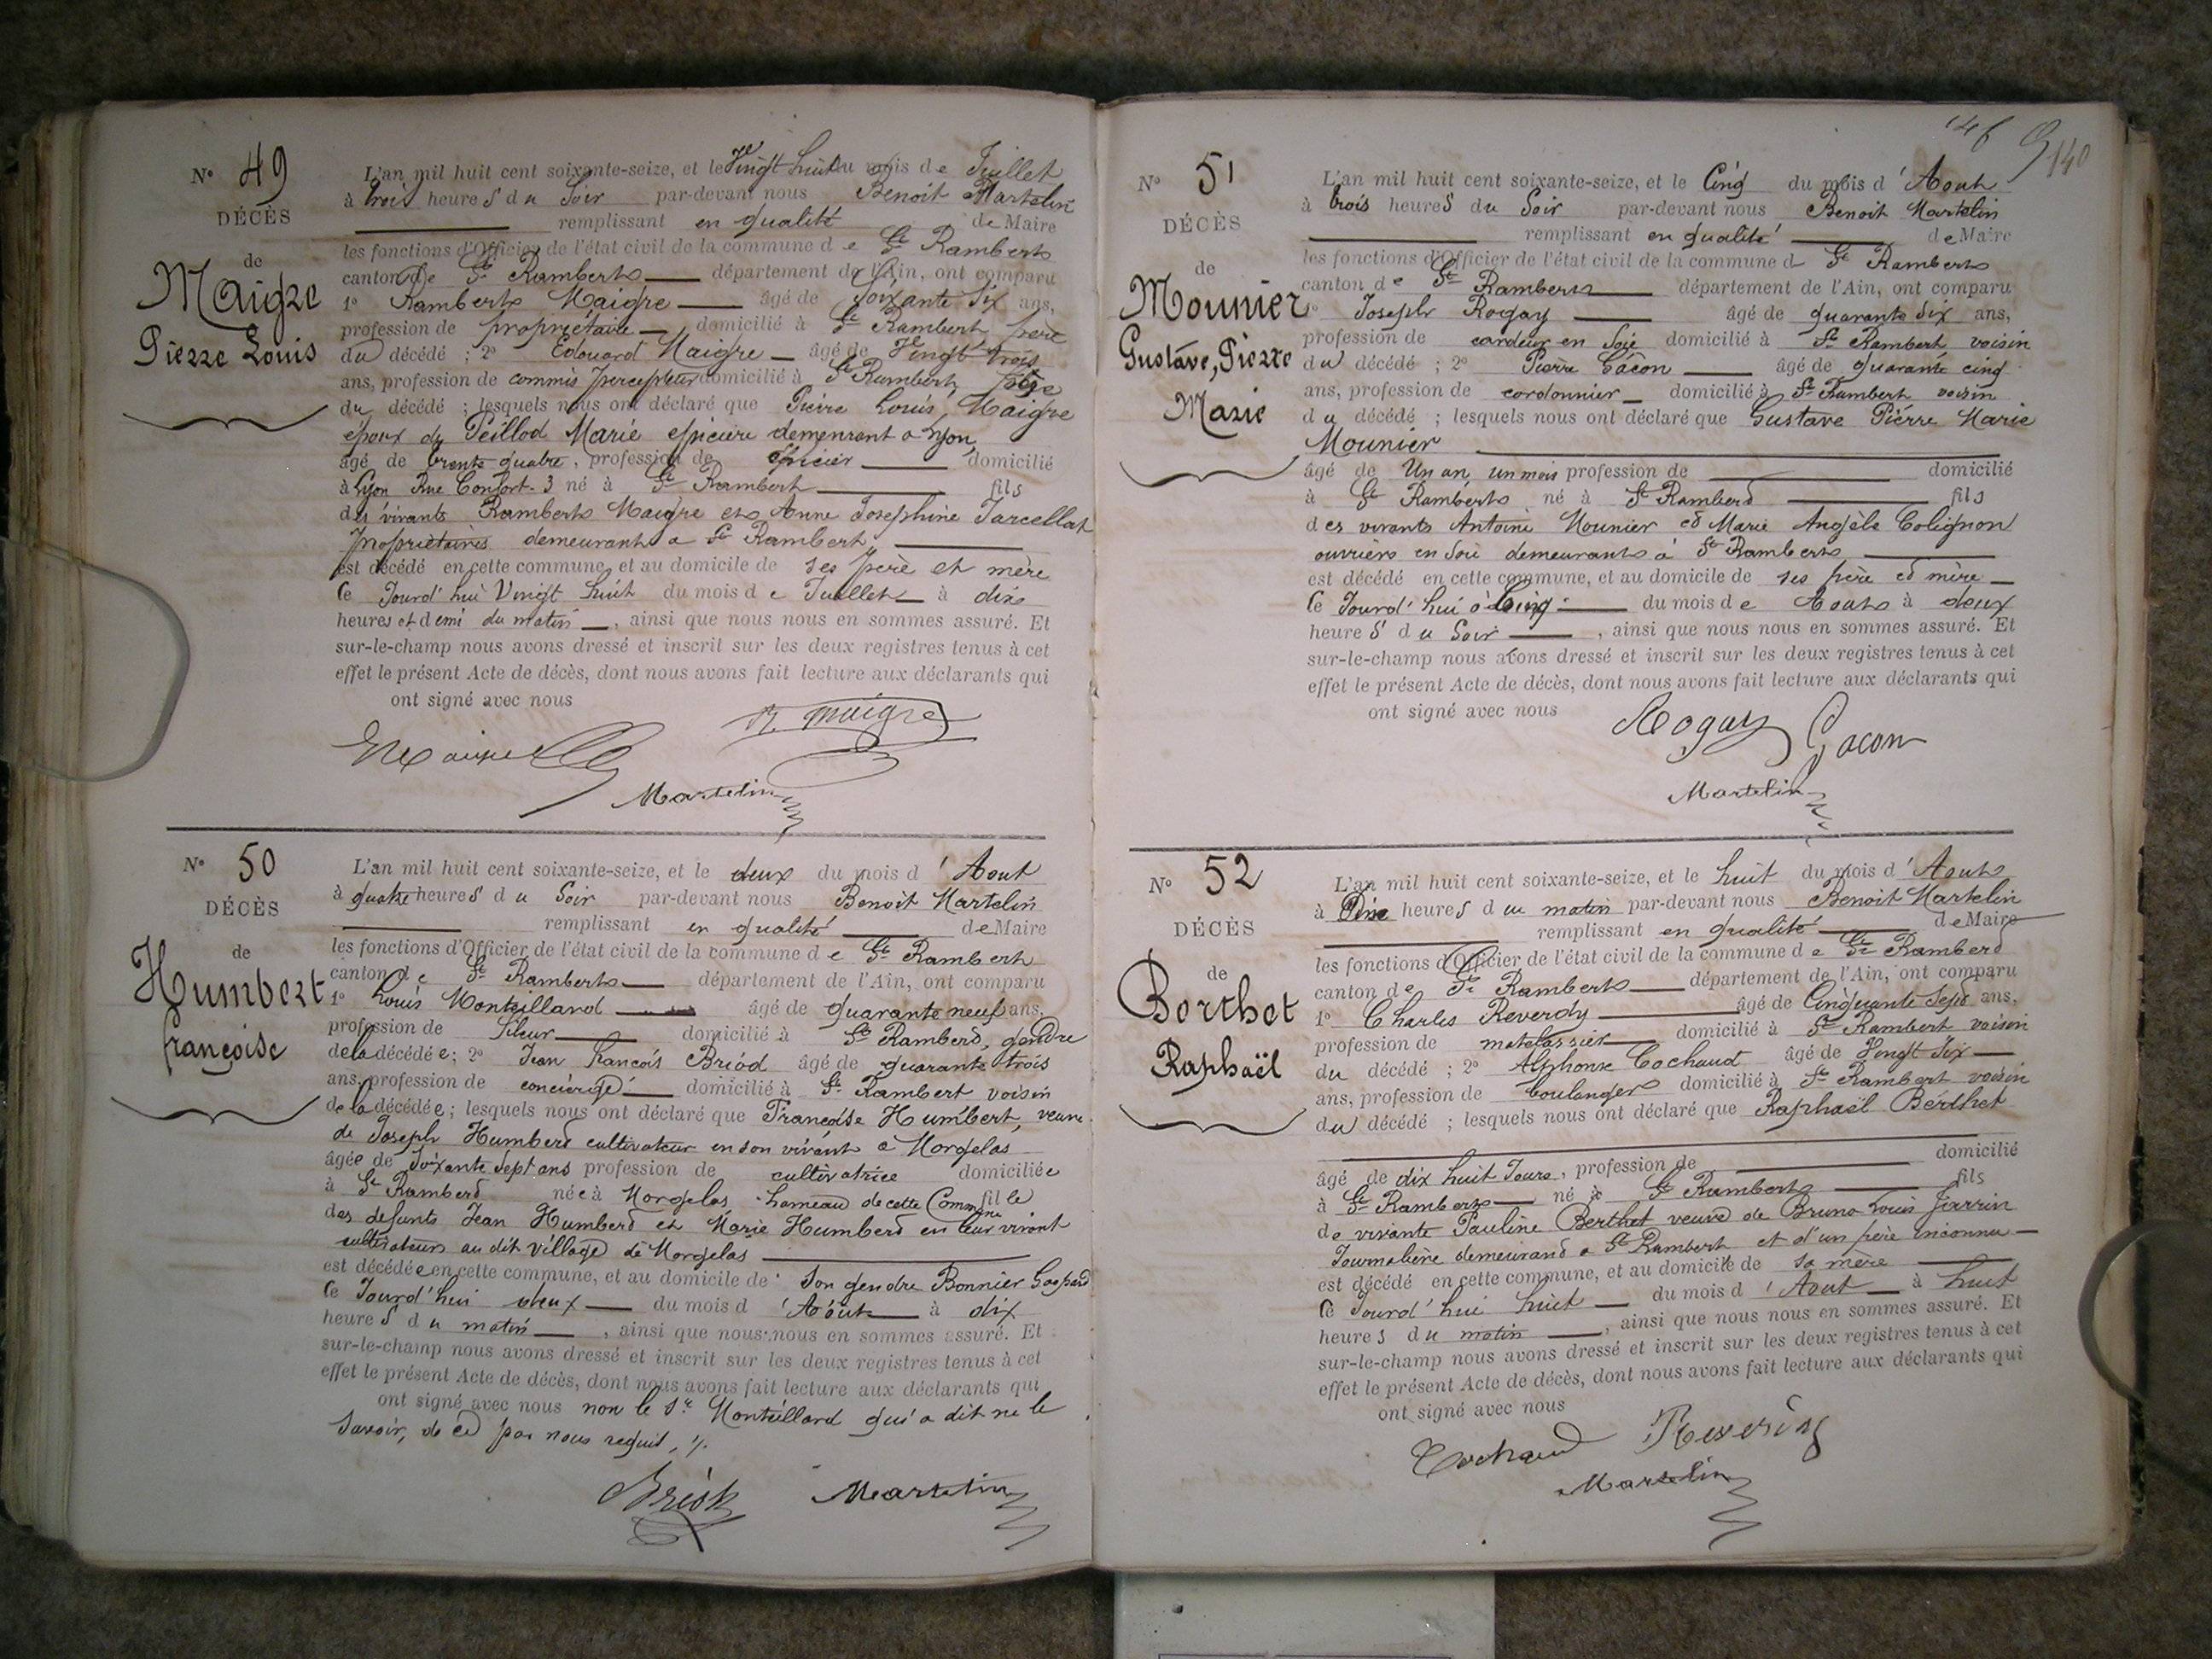 N° 49
DÉCÈS
de
Maigre
Pierre Louis
L'an mil huit cent soixante-seize, et le Vingt huit du mois de Juillet
à trois heures du Soir par-devant nous Benoit Martelin
remplissant en qualité de Maire
les fonctions d'Officier de l'état civil de la commune de St Rambert
canton de St Rambert département de l'Ain, ont comparu
1° Rambert Maigre âgé de Soixante Six ans,
profession de propriétaire domicilié à St Rambert père
du décédé ; 2° Edouard Maigre âgé de Vingt trois
ans, profession de commis percepteur domicilié à St Rambert
du décédé ; lesquels nous ont déclaré que Pierre Louis Maigre
époux de Peillod Marie epicière demeurant a Lyon,
âgé de trente quatre, profession de Epicier domicilié
à Lyon Rue Confort 3 né à St Rambert fils
des vivants Rambert Maigre et Anne Josephine Jarcellat
propriètaires demeurant a St Rambert
est décédé en cette commune, et au domicile de ses père et mère
ce Jourd'hui Vingt huit du mois de Juillet à dix
heures et demi du matin, ainsi que nous nous en sommes assuré. Et
sur-le-champ nous avons dressé et inscrit sur les deux registres tenus à cet
effet le présent Acte de décès, dont nous avons fait lecture aux déclarants qui
ont signé avec nous
R. Maigre
E Maigre
Martelin
N° 50
DÉCÈS
de
Humbert
françoise
L'an mil huit cent soixante-seize, et le deux du mois d'Aout
à quatre heures du Soir par-devant nous Benoit Martelin
remplissant en qualité de Maire
les fonctions d'Officier de l'état civil de la commune de St Rambert
canton de St Rambert département de l'Ain, ont comparu
1° Louis Monteilland âgé de quarante neuf ans,
profession de fileur domicilié à St Rambert, gendre
de la décédée; 2° Jean François Briod âgé de quarante trois
ans, profession de concierge domicilié à St Rambert voisin
de la décédée; lesquels nous ont déclaré que Françoise Humbert, veuve
de Joseph Humbert cultivateur en son vivant a Morgelas
âgée de Soixante Sept ans profession de cultivatrice domiciliée
à St Rambert née à Morgelas hameau de cette Commune fille
des defunts Jean Humbert et Marie Humbert en leur vivant
cultivateurs au dit village de Morgelas
est décédée en cette commune, et au domicile de Son gendre Bonnier Gaspard
ce Jourd'hui deux du mois d'Août à dix
heures du matin, ainsi que nous nous en sommes assuré. Et
sur-le-champ nous avons dressé et inscrit sur les deux registres tenus à cet
effet le présent Acte de décès, dont nous avons fait lecture aux déclarants qui
ont signé avec nous non le Sr Monteilland qui a dit ne le
Savoir, de ce par nous requis,
Briod
Martelin
146
140
N° 51
DÉCÈS
de
Mounier
Gustave, Pierre
Marie
L'an mil huit cent soixante-seize, et le Cinq du mois d'Aout
à trois heures du Soir par-devant nous Benoit Martelin
remplissant en qualité de Maire
les fonctions d'Officier de l'état civil de la commune d St Rambert
canton de St Rambert département de l'Ain, ont comparu
1° Joseph Rogay âgé de quarante Six ans,
profession de cardeur en Soie domicilié à St Rambert voisin
du décédé ; 2° Pierre Gacon âgé de quarante cinq
ans, profession de cordonnier domicilié à St Rambert voisin
du décédé ; lesquels nous ont déclaré que Gustave Pierre Marie
Mounier
âgé de Un an, un mois profession de domicilié
à St Rambert né à St Rambert fils
des vivants Antoine Mounier et Marie Angèle Colignon
ouvriers en Soie demeurants à St Rambert
est décédé en cette commune, et au domicile de ses père et mère
ce Jourd'hui Cinq du mois de Aout à deux
heures du Soir, ainsi que nous nous en sommes assuré. Et
sur-le-champ nous avons dressé et inscrit sur les deux registres tenus à cet
effet le présent Acte de décès, dont nous avons fait lecture aux déclarants qui
ont signé avec nous
Rogay Gacon
Martelin
N° 52
DÉCÈS
de
Berthet
Raphaël
L'an mil huit cent soixante-seize, et le huit du mois d'Aout
à Dix heures du matin par-devant nous Benoit Martelin
remplissant en qualité de Maire
les fonctions d'Officier de l'état civil de la commune de St Rambert
canton de St Rambert département de l'Ain, ont comparu
1° Charles Reverdy âgé de Cinquante Sept ans,
profession de matelassier domicilié à St Rambert voisin
du décédé ; 2° Alphonse Cochaud âgé de Vingt Six
ans, profession de boulanger domicilié à St Rambert voisin
du décédé ; lesquels nous ont déclaré que Raphaël Berthet
âgé de dix huit Jours, profession de domicilié
à St Rambert né à St Rambert fils
de vivante Pauline Berthet veuve de Bruno Louis Jarrin
Journalière demeurand a St Rambert et d'un père inconnu
est décédé en cette commune, et au domicile de sa mère
ce Jourd'hui huit du mois d'Aout à huit
heures du matin, ainsi que nous nous en sommes assuré. Et
sur-le-champ nous avons dressé et inscrit sur les deux registres tenus à cet
effet le présent Acte de décès, dont nous avons fait lecture aux déclarants qui
ont signé avec nous
Cochaud Reverdy
Martelin